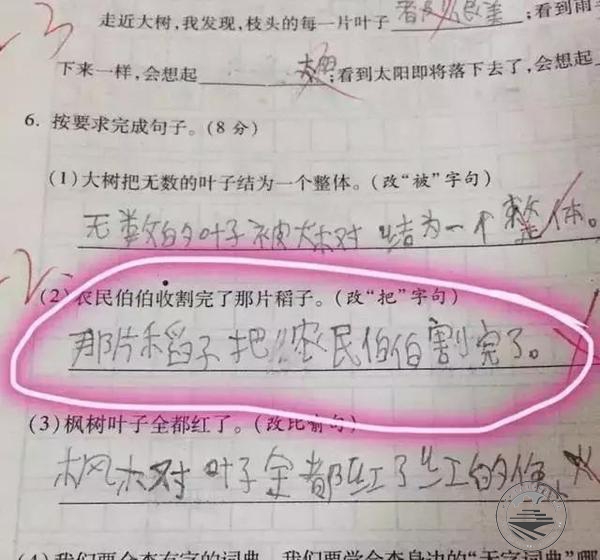 走近大树,我发现,枝头的每一片叶子 ;看到雨
下来一样,会想起 ;看到太阳即将落下去了,会想起
6. 按要求完成句子。(8分)
(1)大树把无数的叶子结为一个整体。(改“被”字句)
无数的叶子被大树结为一个整体。
(2)农民伯伯收割完了那片稻子。(改“把”字句)
那片稻子把农民伯伯割完了。
(3)枫树叶子全都红了。(改比喻句)
枫树叶子全都红了红的像